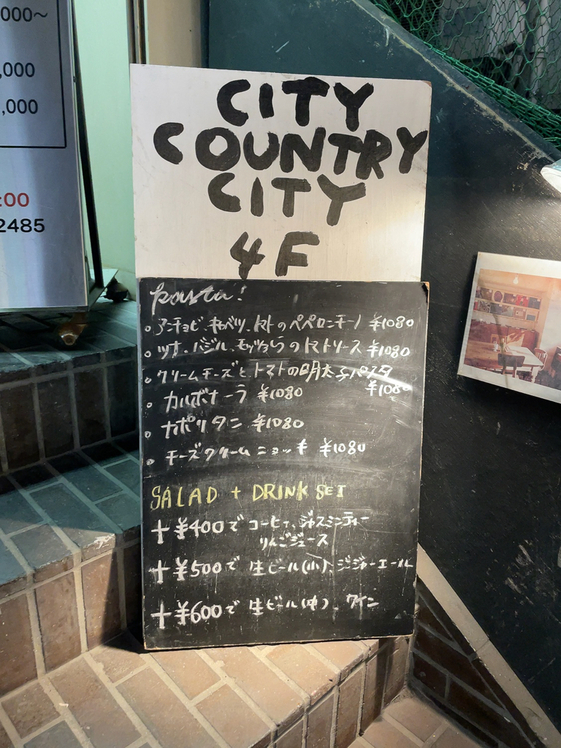 000~
,000
,000
:00
2485
CITY
COUNTRY
CITY
4F
pasta!
。アンチョビ、キャベツ、トマトのペペロンチーノ ¥1080
。ツナ、バジル、モッツァレラのトマトソース ¥1080
。クリームチーズとトマトの明太子パスタ ¥1080
。カルボナーラ ¥1080
。ナポリタン ¥1080
。チーズクリームニョッキ ¥1080
SALAD + DRINK SET
+¥400で コーヒー、ジャスミンティー
りんごジュース
+¥500で 生ビール(小)、ジンジャーエール
+¥600で 生ビール(中)、ワイン